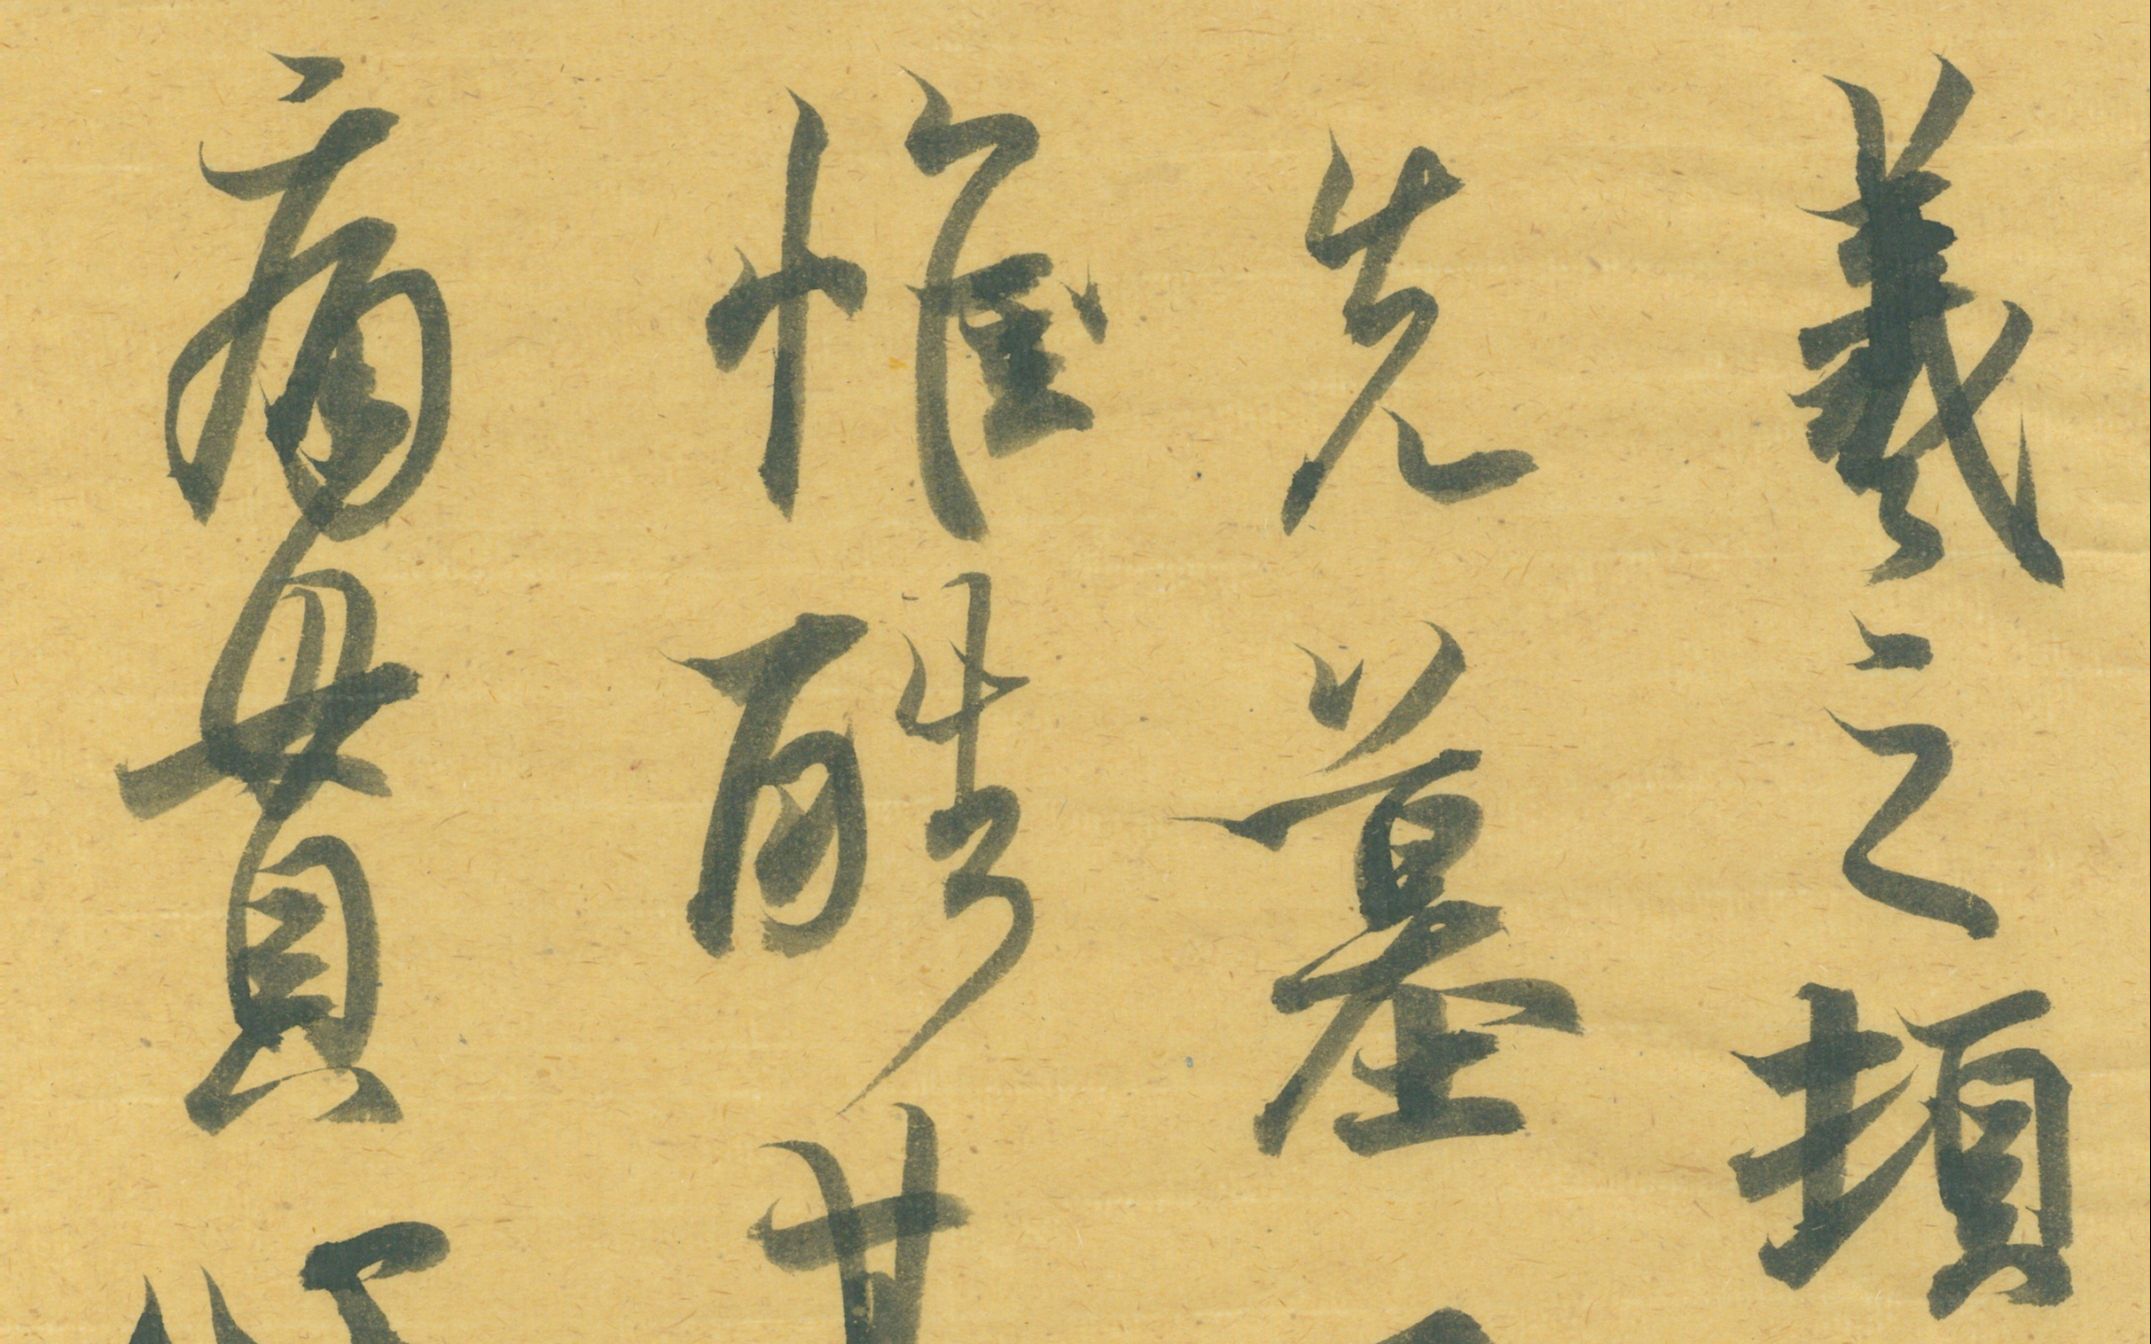 羲之頓
先墓
惟酷甚
痛貫